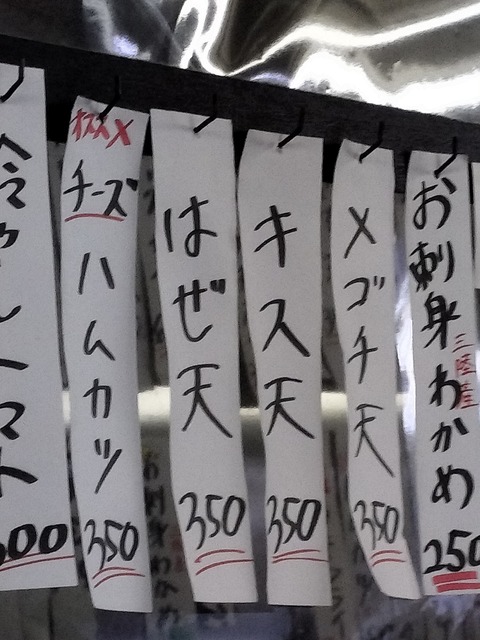 お刺身わかめ
三陸産
250
メゴチ天
350
キス天
350
はぜ天
350
オススメ
チーズ
ハムカツ
350
冷やしトマト
300